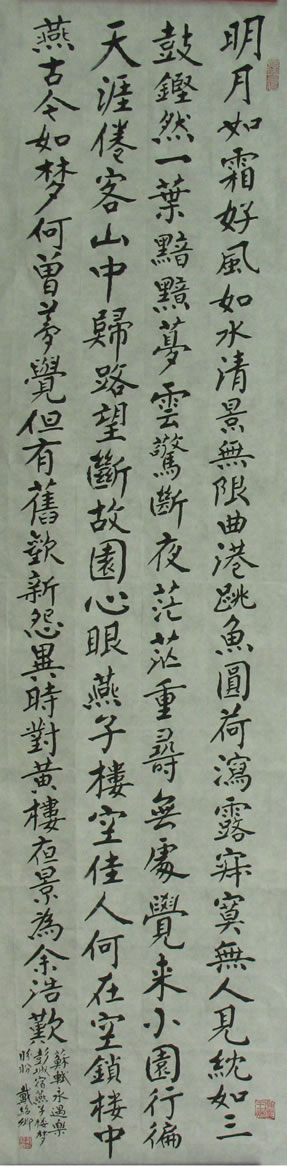 明月如霜好風如水清景無限曲港跳魚圓荷瀉露寂寞無人見紞如三
鼓鏗然一葉黯黯夢雲驚斷夜茫茫重尋無處覺来小園行徧
天涯倦客山中歸路望斷故園心眼燕子樓空佳人何在空鎖樓中
燕古今如梦何曾夢覺但有舊歡新怨異時對黃樓夜景為余浩歎
蘇軾永遇樂
彭城宿燕子樓梦
盼盼 戴